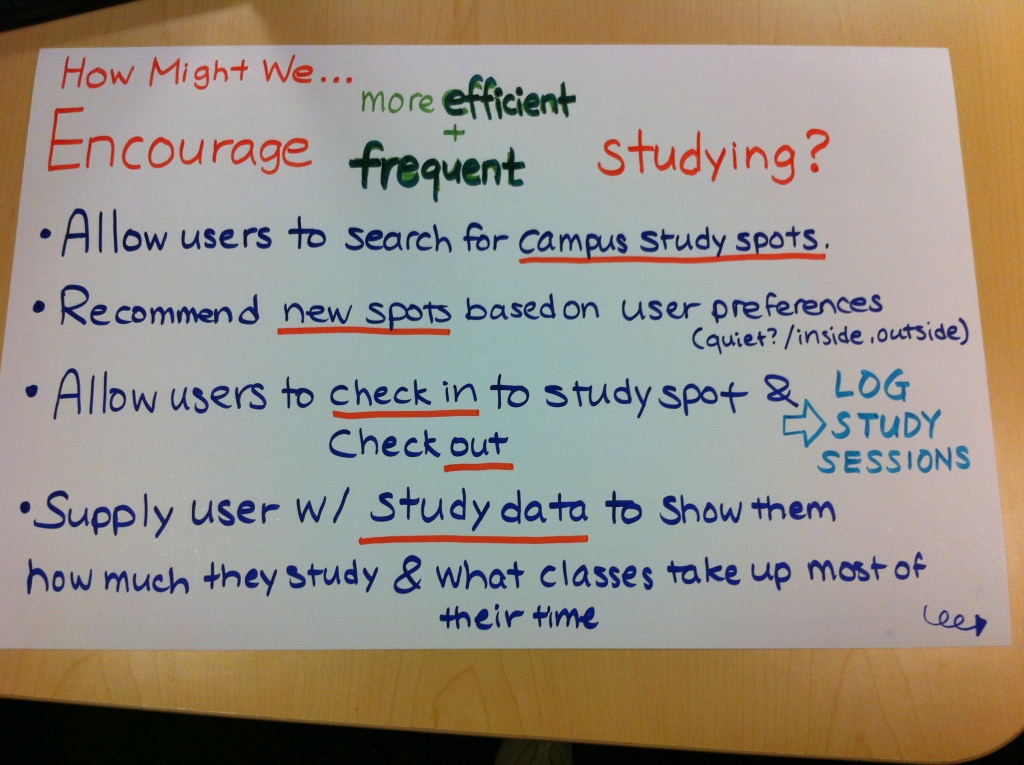 How Might We...
more efficient
+
Encourage frequent studying?
• Allow users to search for campus study spots.
• Recommend new spots based on user preferences
(quiet?/inside.outside)
• Allow users to check in to study spot &
Check out
LOG
STUDY
SESSIONS
• Supply user w/ study data to show them
how much they study & what classes take up most of
their time